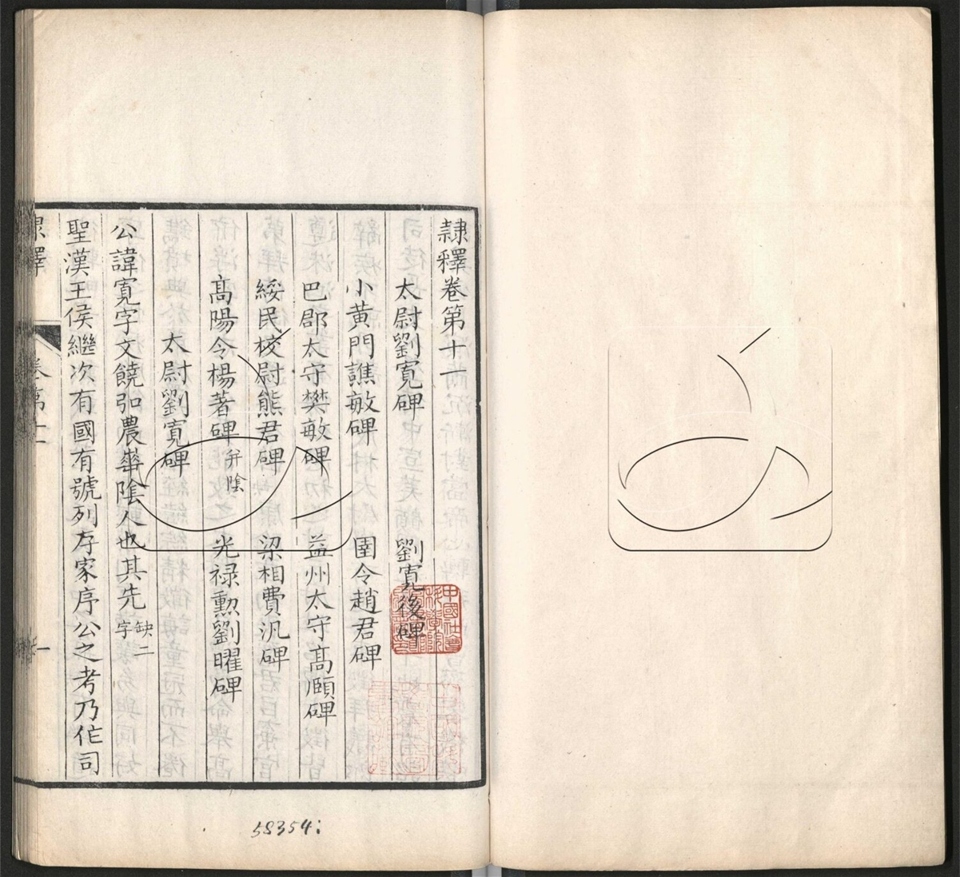 隷釋卷第十一
太尉劉寬碑 劉寬後碑
小黃門譙敏碑 圉令趙君碑
巴郡太守樊敏碑 益州太守高頤碑
綏民校尉熊君碑 梁相費汎碑
高陽令楊著碑 并陰 光祿勲劉曜碑
太尉劉寬碑
公諱寬字文饒弘農華陰人也其先缺二字
聖漢王侯繼次有國有號列存家序公之考乃作司
隷釋 卷第十一 一
58354